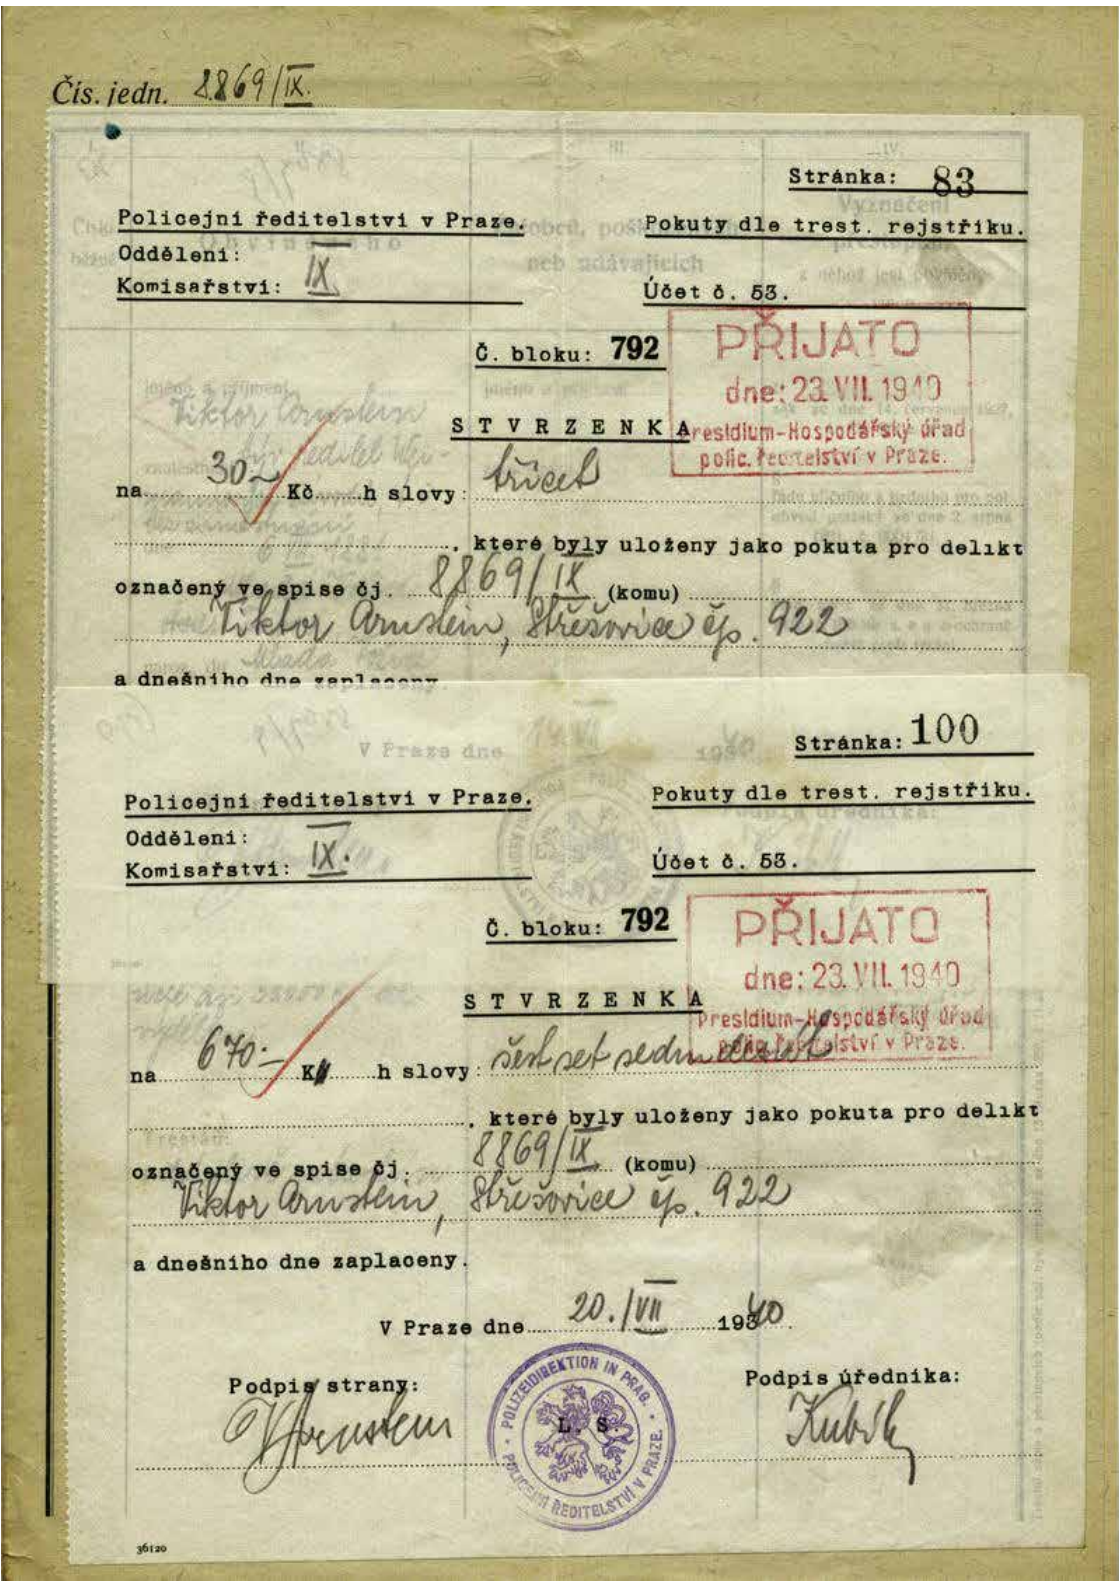 Čís. jedn. 8869/IX.
Stránka: 83
Policejní ředitelství v Praze.
Pokuty dle trest. rejstříku.
Oddělení:
Komisařství: IX.
Účet č. 53.
Č. bloku: 792
PŘIJATO
dne: 23. VII. 1940
Presidium-Hospodářský úřad
polic. ředitelství v Praze.
STVRZENKA
na 30.- Kč h slovy: třicet
, které byly uloženy jako pokuta pro delikt
označený ve spise čj. 8869/IX (komu)
Viktor Arnstein, Střešovice čp. 922
a dnešního dne zaplaceny.
V Praze dne 14. VII 1940
Stránka: 100
Policejní ředitelství v Praze.
Pokuty dle trest. rejstříku.
Oddělení:
Komisařství: IX.
Účet č. 53.
Č. bloku: 792
PŘIJATO
dne: 23. VII. 1940
Presidium-Hospodářský úřad
polic. ředitelství v Praze.
STVRZENKA
na 670.- K h slovy: šest set sedmdesát
, které byly uloženy jako pokuta pro delikt
označený ve spise čj. 8869/IX (komu)
Viktor Arnstein, Střešovice čp. 922
a dnešního dne zaplaceny.
V Praze dne 20./VII 1940.
Podpis strany:
Podpis úředníka:
VArnstein
Kubík
POLIZEIDIREKTION IN PRAG.
L. S.
POLICEJNÍ ŘEDITELSTVÍ V PRAZE.
36120